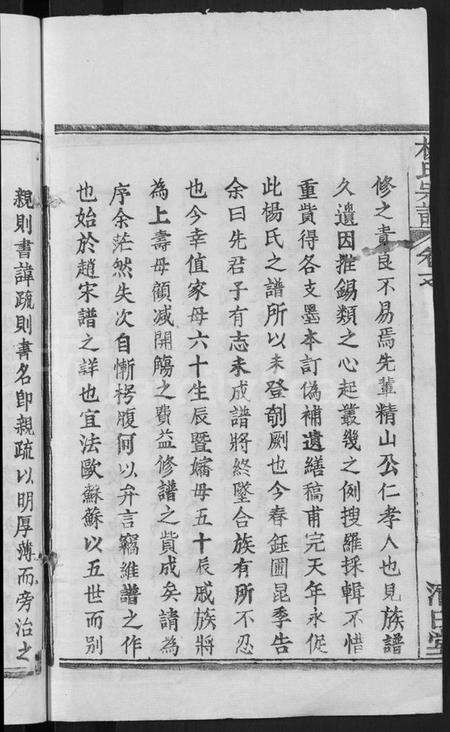 楊氏宗譜
修之責良不易焉先輩精山公仁孝人也見族譜
久遺因推錫類之心起叢幾之例搜羅採輯不惜
重貲得各支墨本訂偽補遺繕稿甫完天年永促
此楊氏之譜所以未登剞劂也今春鈺圃昆季告
余曰先君子有志未成譜將終墜合族有所不忍
也今幸值家母六十生辰暨嬸母五十辰戚族將
為上壽母願減開觴之費益修譜之貲成矣請為
序余茫然失次自慚枵腹何以弁言竊維譜之作
也始於趙宋譜之詳也宜法歐蘇蘇以五世而別
親則書諱疏則書名即親疏以明厚薄而旁治之